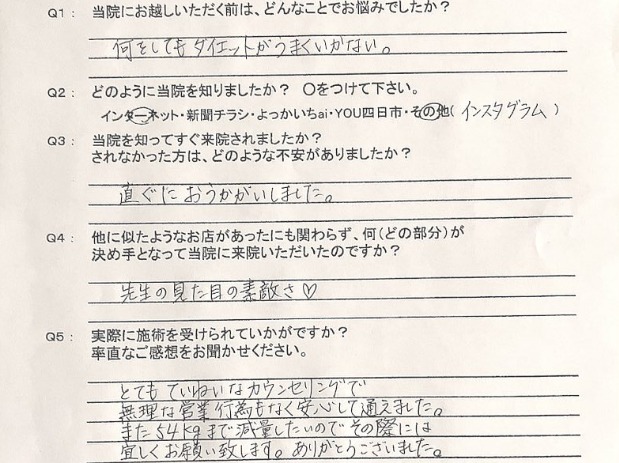 Q1： 当院にお越しいただく前は、どんなことでお悩みでしたか？
何をしてもダイエットがうまくいかない。
Q2： どのように当院を知りましたか？ ○をつけて下さい。
インターネット・新聞チラシ・よっかいちai・YOU四日市・その他（インスタグラム）
Q3： 当院を知ってすぐ来院されましたか？
されなかった方は、どのような不安がありましたか？
直ぐにおうかがいしました。
Q4： 他に似たようなお店があったにも関わらず、何（どの部分）が
決め手となって当院に来院いただいたのですか？
先生の見た目の素敵さ♡
Q5： 実際に施術を受けられていかがですか？
率直なご感想をお聞かせください。
とてもていねいなカウンセリングで
無理な営業行為もなく安心して通えました。
また54kgまで減量したいのでその際には
宜しくお願い致します。ありがとうございました。